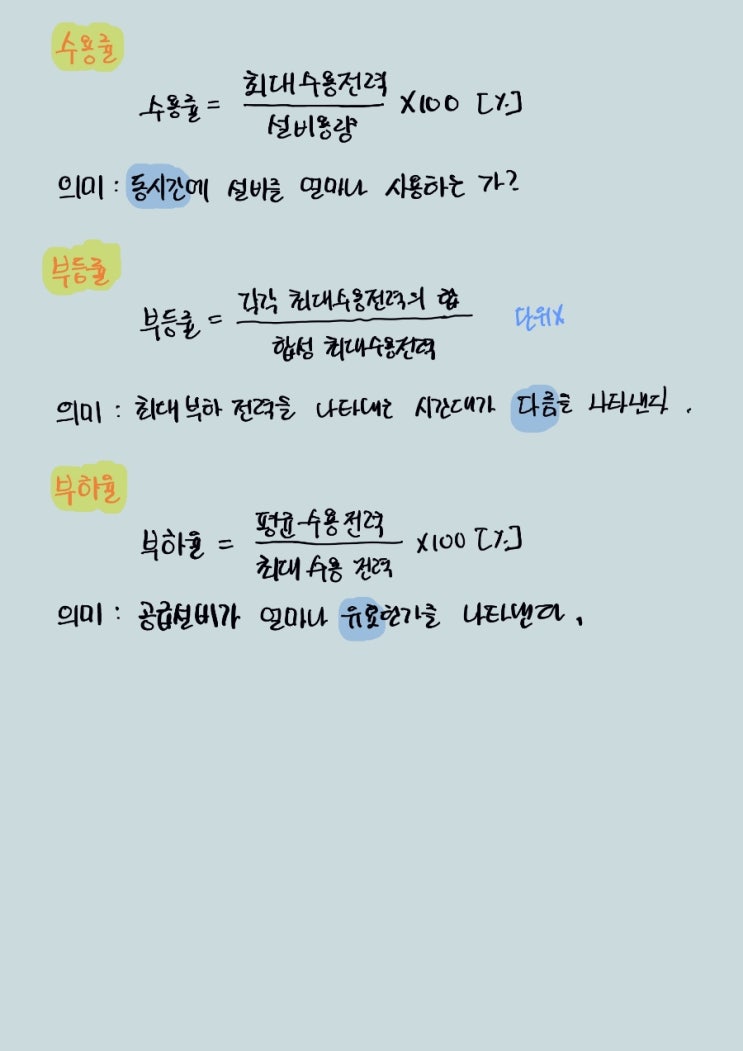 수용률
수용률 = 최대수용전력 / 설비용량 X100 [%]
의미 : 동시간에 설비를 얼마나 사용하는 가?
부등률
부등률 = 각각 최대수용전력의 합 / 합성 최대수용전력 단위X
의미 : 최대부하 전력을 나타내는 시간대가 다름을 나타낸다.
부하율
부하율 = 평균수용전력 / 최대 수용 전력 X100 [%]
의미 : 공급설비가 얼마나 유효한가를 나타낸다.